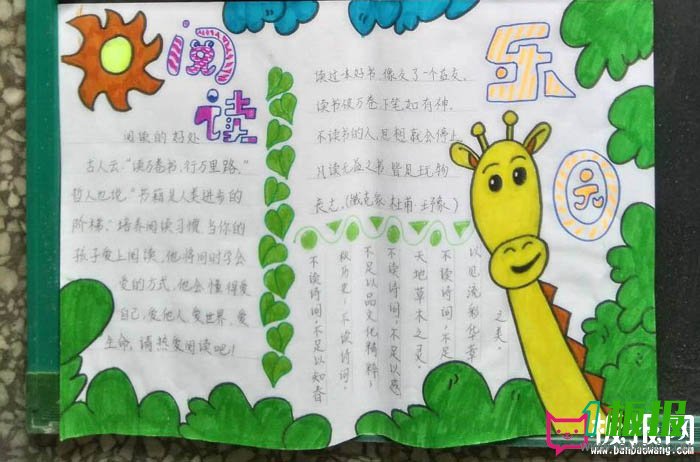 阅读
乐
园
阅读的好处
古人云:“读万卷书,行万里路,”
哲人也说“书籍是人类进步的
阶梯、培养阅读习惯,当你的
孩子爱上阅读,他将同时学会
爱的方式,他会懂得爱
自己,爱他人,爱世界,爱
生命,请热爱阅读吧!
读过一本好书,像交了一个益友,
读书破万卷下笔如有神,
不读书的人,思想就会停止,
凡读无益之书皆是玩物
丧志,(臧克家 杜甫 王豫)
之美。
以见流彩华章
不读诗词,不足以
天地草木之灵。
不读诗词,不足以感
不足以品文化精粹;
秋历史;不读诗词,
不读诗词,不足以知春
板报网
www.banbaowang.com